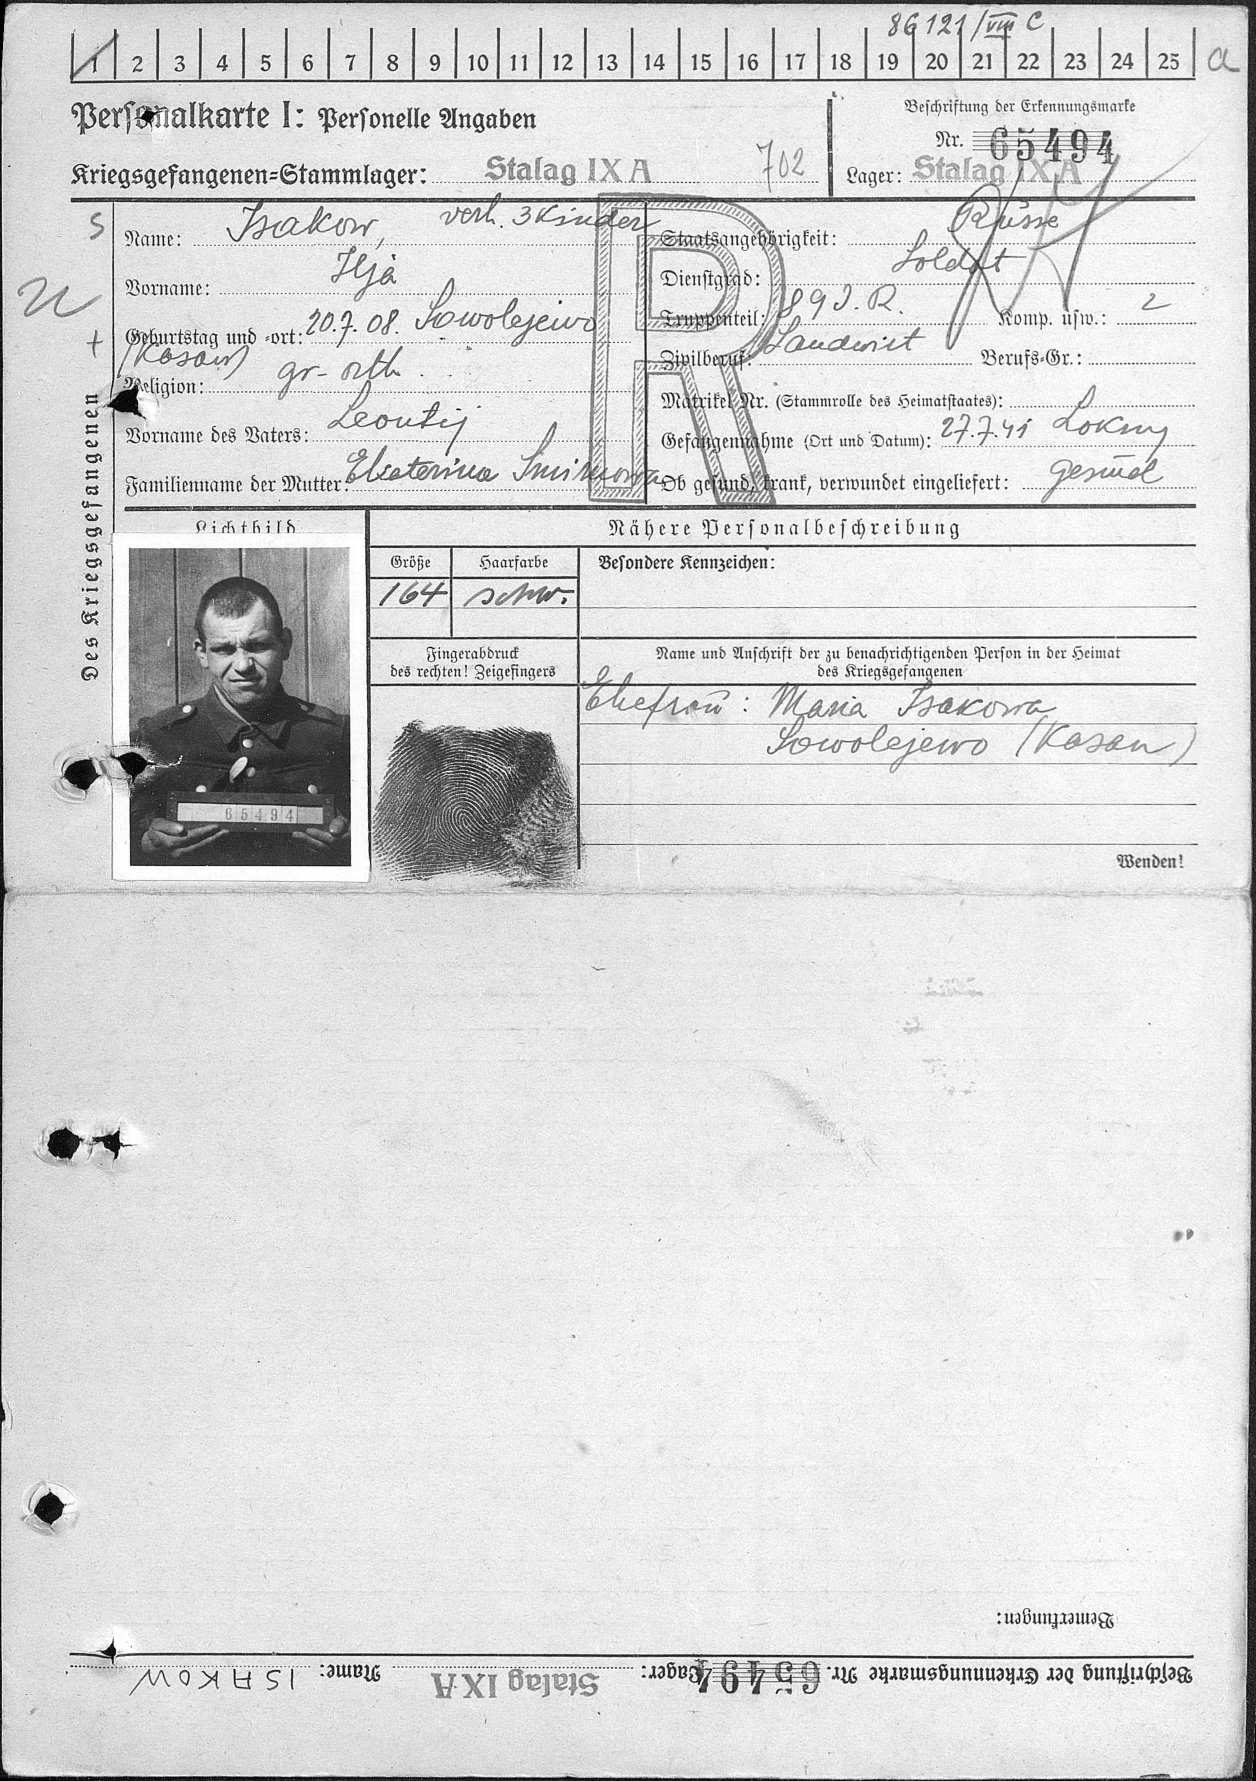 86121/VIII C
1 2 3 4 5 6 7 8 9 10 11 12 13 14 15 16 17 18 19 20 21 22 23 24 25 a
Personalkarte I: Personelle Angaben
Beschriftung der Erkennungsmarke
Nr. 65494
Kriegsgefangenen-Stammlager: Stalag IX A 702
Lager: Stalag IX A
R
S
Des Kriegsgefangenen
Name: Isakow, verh. 3 Kinder
Vorname: Iljá
Geburtstag und -ort: 20.7.08. Sowolejewo
(Kasan)
Religion: gr-orth.
Vorname des Vaters: Leontij
Familienname der Mutter: Ekaterina Smirnowa
Staatsangehörigkeit: Russe
Dienstgrad: Soldat
Truppenteil: 89 J.R. Komp. usw.: 2
Zivilberuf: Landwirt Berufs-Gr.:
Matrikel Nr. (Stammrolle des Heimatstaates):
Gefangennahme (Ort und Datum): 27.7.41 Lokny
Ob gesund, krank, verwundet eingeliefert: gesund
Lichtbild
Nähere Personalbeschreibung
Größe Haarfarbe Besondere Kennzeichen:
164 schw.
Fingerabdruck
des rechten! Zeigefingers
Name und Anschrift der zu benachrichtigenden Person in der Heimat
des Kriegsgefangenen
Ehefrau: Maria Isakowa
Sowolejewo (Kasan)
65494
Wenden!
Bemerkungen:
Beschriftung der Erkennungsmarke Nr. 65494 Lager: Stalag IX A Name: ISAKOW